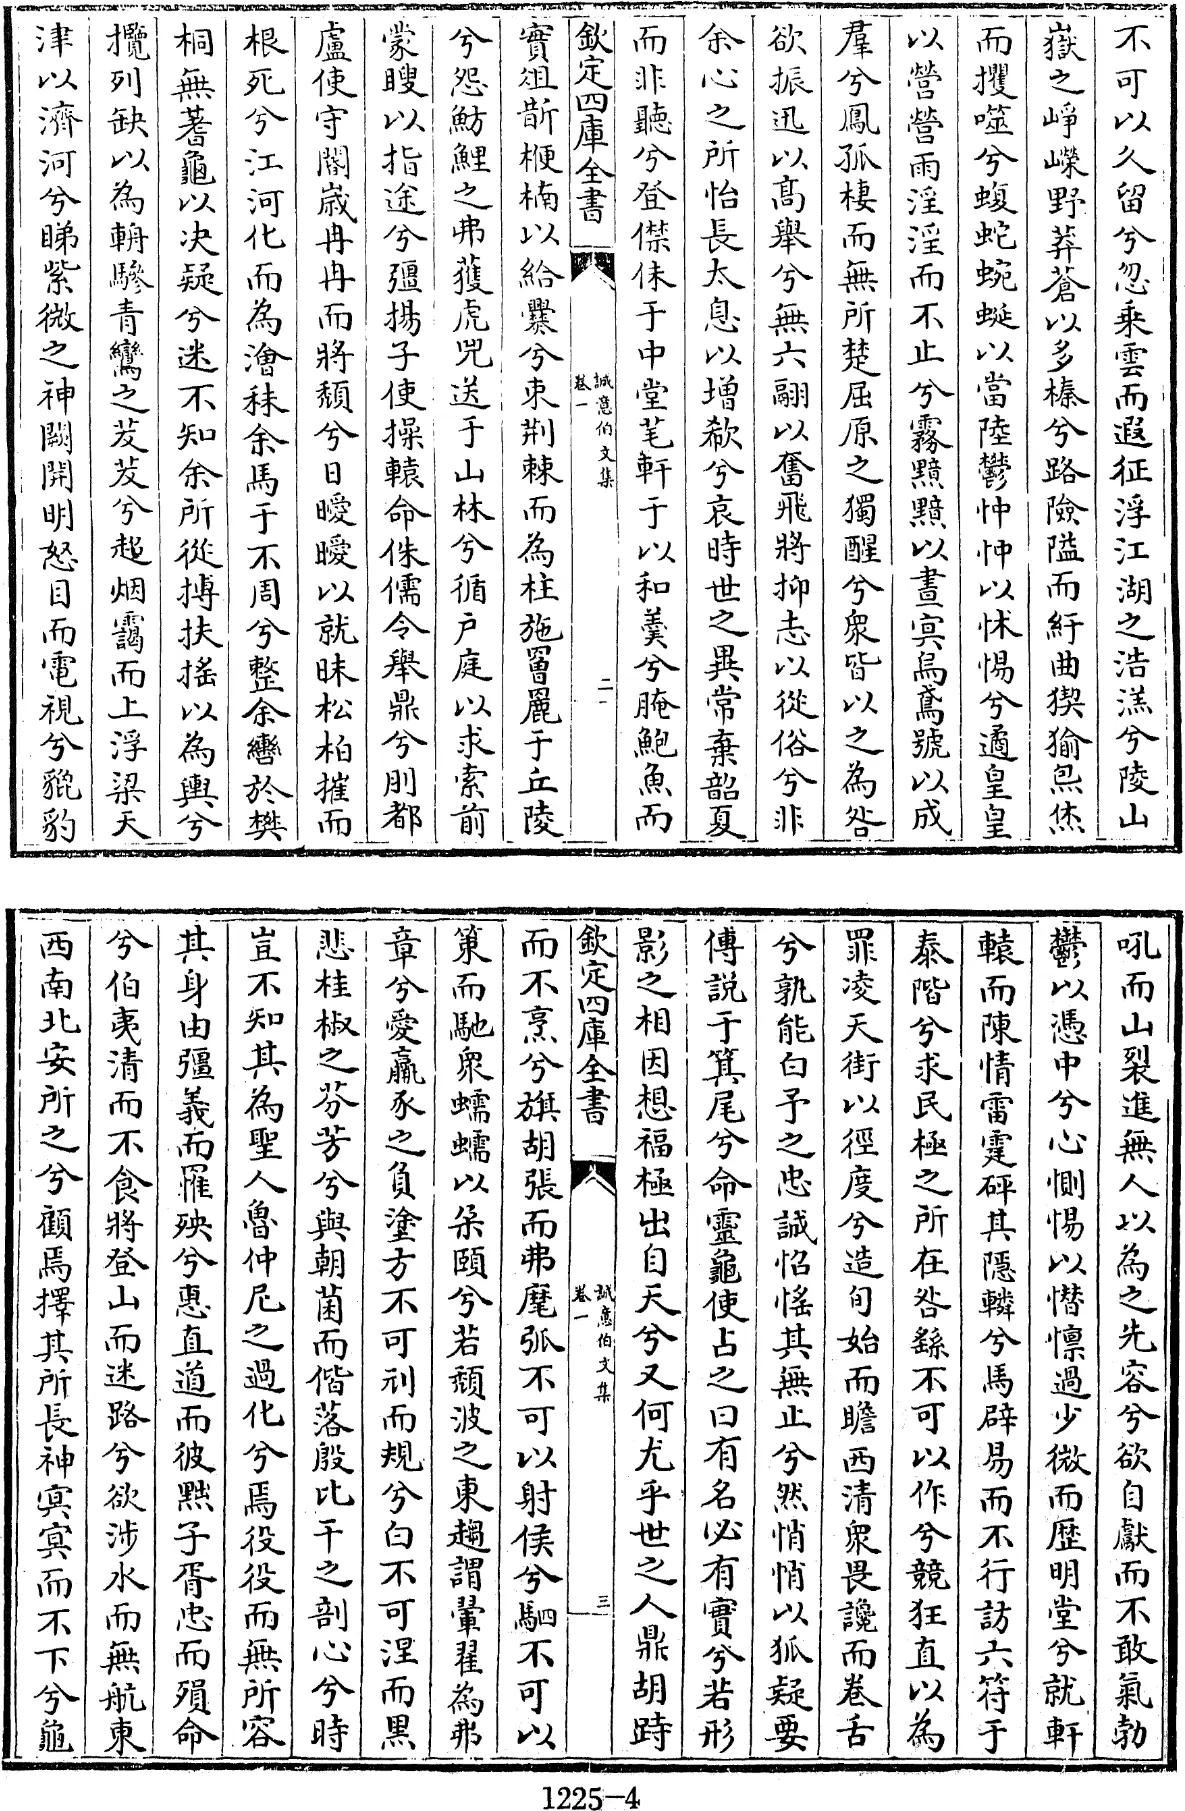 不可以久留兮忽乗雲而遐征浮江湖之浩渺兮陵山
嶽之崢嶸野莽蒼以多榛兮路險隘而紆曲猰㺄烋烋
而攫噬兮蝮蛇蜿蜒以當陸鬱忡忡以怵惕兮遹皇皇
以營營雨淫淫而不止兮霧黯黯以晝㝠烏鳶號以成
羣兮鳳孤棲而無所楚屈原之獨醒兮衆皆以之為咎
欲振迅以髙舉兮無六翮以奮飛將抑志以從俗兮非
余心之所怡長太息以增欷兮哀時世之異常棄韶夏
而非聽兮登僸佅于中堂芼軒于以和羮兮腌鮑魚而
欽定四庫全書
誠意伯文集
卷一
二
實俎斮楩楠以給爨兮束荆棘而為柱施罾䍡于丘陵
兮怨魴鯉之弗獲虎兕送于山林兮循户庭以求索前
蒙瞍以指途兮彊揚子使操轅命侏儒令舉鼎兮刖都
盧使守閽嵗冉冉而將頽兮日曖曖以就昧松柏摧而
根死兮江河化而為澮秣余馬于不周兮整余轡於樊
桐無蓍龜以决疑兮迷不知余所從搏扶搖以為輿兮
攬列缺以為輈驂青鸞之芨芨兮超烟靄而上浮梁天
津以濟河兮睇紫微之神闕開明怒目而電視兮貔豹
吼而山裂進無人以為之先容兮欲自獻而不敢氣勃
鬱以憑中兮心惻惕以憯懍過少微而歴明堂兮就軒
轅而陳情雷霆砰其隱轔兮馬辟易而不行訪六符于
泰階兮求民極之所在咎繇不可以作兮競狂直以為
罪凌天街以徑度兮造旬始而瞻西清衆畏讒而卷舌
兮孰能白予之忠誠怊慅其無止兮然悄悄以狐疑要
傅説于箕尾兮命靈龜使占之曰有名必有實兮若形
影之相因想福極出自天兮又何尤乎世之人鼎胡跱
欽定四庫全書
誠意伯文集
卷一
三
而不烹兮旗胡張而弗麾弧不可以射侯兮駟不可以
策而馳衆蠕蠕以朶頤兮若頽波之東趨謂翬翟為弗
章兮愛羸豕之負塗方不可刓而規兮白不可湼而黒
悲桂椒之芬芳兮與朝菌而偕落殷比干之剖心兮時
豈不知其為聖人魯仲尼之過化兮焉役役而無所容
其身由彊義而罹殃兮惠直道而彼黜子胥忠而殞命
兮伯夷清而不食將登山而迷路兮欲涉水而無航東
西南北安所之兮顧焉擇其所長神㝠㝠而不下兮龜
1225—4